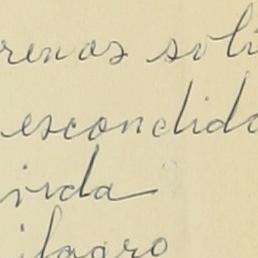 renos soli
escondido
vida
ilagro